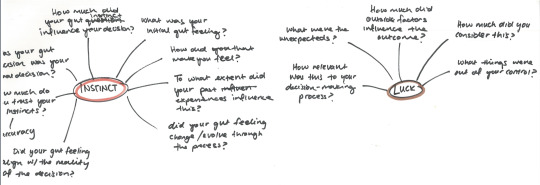 How much did
your gut question instinct
influence your decision?
What was your
initial gut feeling?
How did you that
make you feel?
To what extent did
your past influen
experiences influence
this?
did your gut feeling
change/evolve through
the process?
Did your gut feeling
align w/ the reality
of the decision?
w much do
u trust your
instincts?
ccuracy
as your gut
cision was your
decision?
INSTINCT
What were the
unexpecteds?
How much did
outside factors
influence the
outcome?
How much did you
consider this?
What things were
out of your control?
How relevant
was this to your
decision-making
process?
LUCK